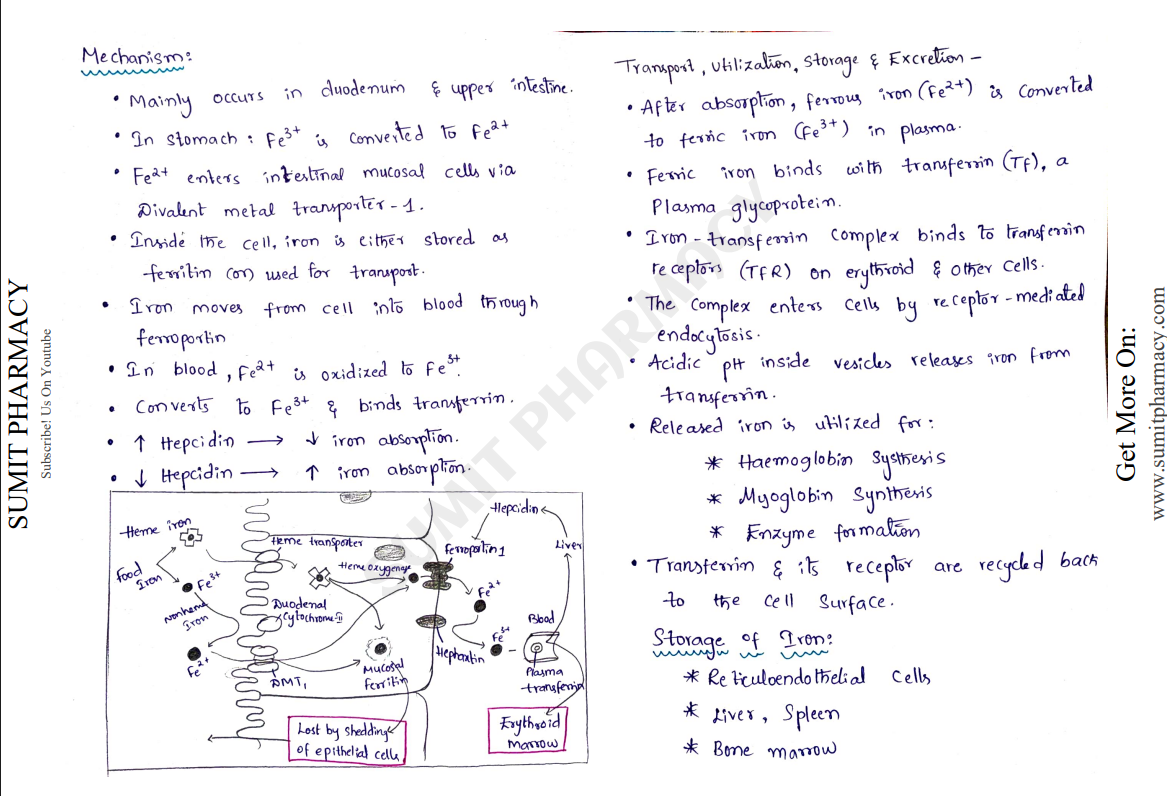 Mechanism:
• Mainly occurs in duodenum & upper intestine.
• In stomach : Fe3+ is converted to Fe2+
• Fe2+ enters intestinal mucosal cells via
Divalent metal transporter-1.
• Inside the cell, iron is either stored as
ferritin (or) used for transport.
• Iron moves from cell into blood through
ferroportin
• In blood, Fe2+ is oxidized to Fe3+.
• Converts to Fe3+ & binds transferrin.
• ↑ Hepcidin → ↓ iron absorption.
• ↓ Hepcidin → ↑ iron absorption.
Heme iron
Food
Iron
Fe3+
Nonheme
Iron
Fe2+
Heme transporter
Heme oxygenase
Duodenal
Cytochrome-II
DMT1
Mucosal
ferritin
Lost by shedding
of epithelial cells
Hepcidin
Ferroportin 1
Liver
Fe2+
Fe3+
Hephaxtin
Blood
Plasma
transferrin
Erythroid
marrow
Transport, Utilization, Storage & Excretion –
• After absorption, ferrous iron (Fe2+) is converted
to ferric iron (Fe3+) in plasma.
• Ferric iron binds with transferrin (Tf), a
Plasma glycoprotein.
• Iron-transferrin complex binds to transferrin
receptors (TfR) on erythroid & other cells.
• The complex enters cells by receptor-mediated
endocytosis.
• Acidic pH inside vesicles releases iron from
transferrin.
• Released iron is utilized for:
* Haemoglobin Systhesis
* Myoglobin Synthesis
* Enzyme formation
• Transferrin & its receptor are recycled back
to the cell surface.
Storage of Iron:
* Reticuloendothelial cells
* Liver, Spleen
* Bone marrow
SUMIT PHARMACY
Subscribe! Us On Youtube
SUMIT PHARMACY
Get More On:
www.sumitpharmacy.com